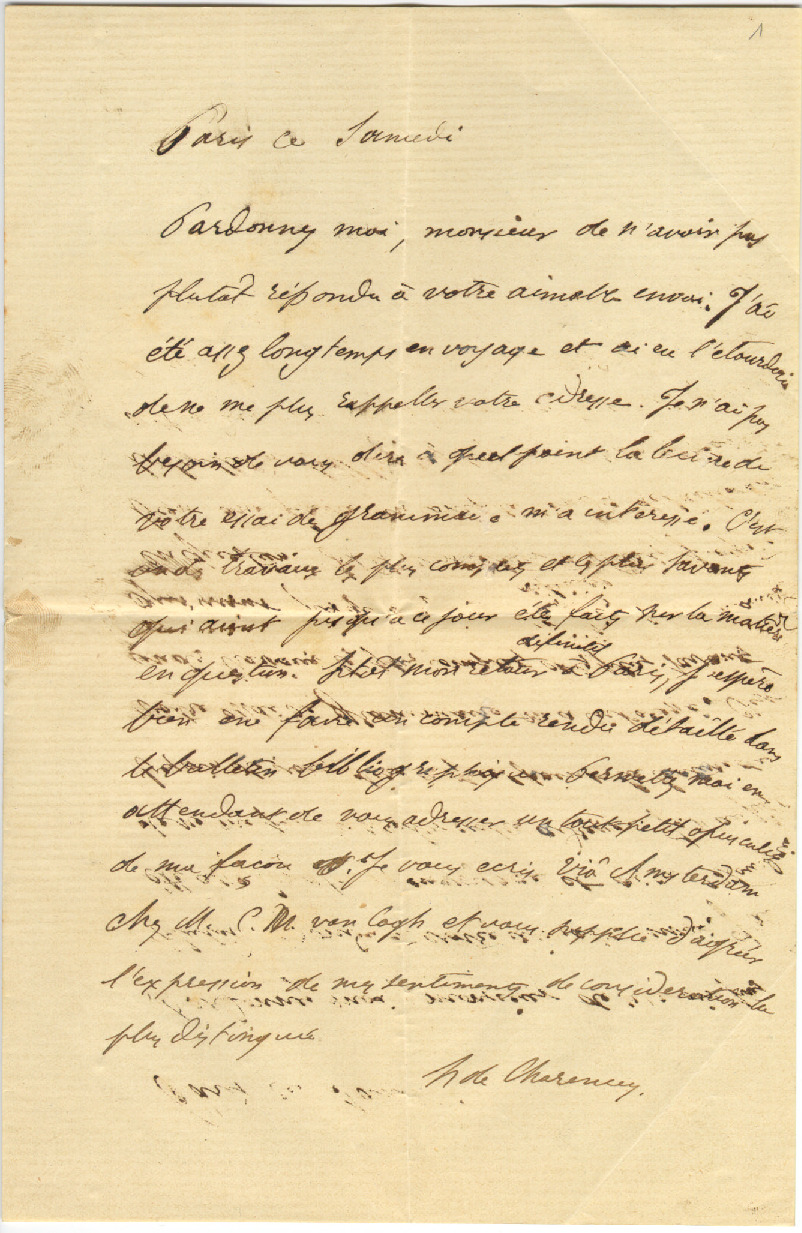 1
Paris ce Samedi
Pardonnez moi, monsieur de n'avoir pas
plutat répondu à votre aimable envoi. J'ai
été assez longtemps en voyage et ai eu l'étourderie
de ne me plus rappeller votre adresse. Je n'ai pas
besoin de vous dire à quel point la lecture de
votre essai de grammaire m'a interessé. C'est
un des travaux les plus complets et les plus savants
qui aient jusqu'à ce jour été faits sur la matière
définitif
en question. Sitot mon retour à Paris, J'espère
bien en faire un compte rendu détaillé dans
le bulletin bibliographique Permettez moi en
attendant de vous adresser un tout petit opuscule
de ma facon. Je vous ecris Viâ Amsterdam
chez M. C. M. van Gogh et vous supplie d'aigréer
l'expression de mes sentiments de consideration la
plus distinguée
h de Charencey.